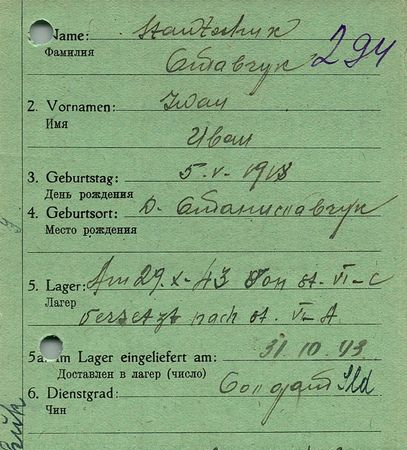 Name: Stawtschuk
Фамилия Ставчук 294
2. Vornamen: Iwan
Имя
Иван
3. Geburtstag: 5. V. 1918
День рождения
4. Geburtsort: Д. Станиславчук
Место рождения
5. Lager: Am 29. X. 43 von St. VI-C
Лагер
versetzt nach St. VI-A
5a. Im Lager eingeliefert am: 31. 10. 43
Доставлен в лагер (число)
6. Dienstgrad: Солдат Sld
Чин